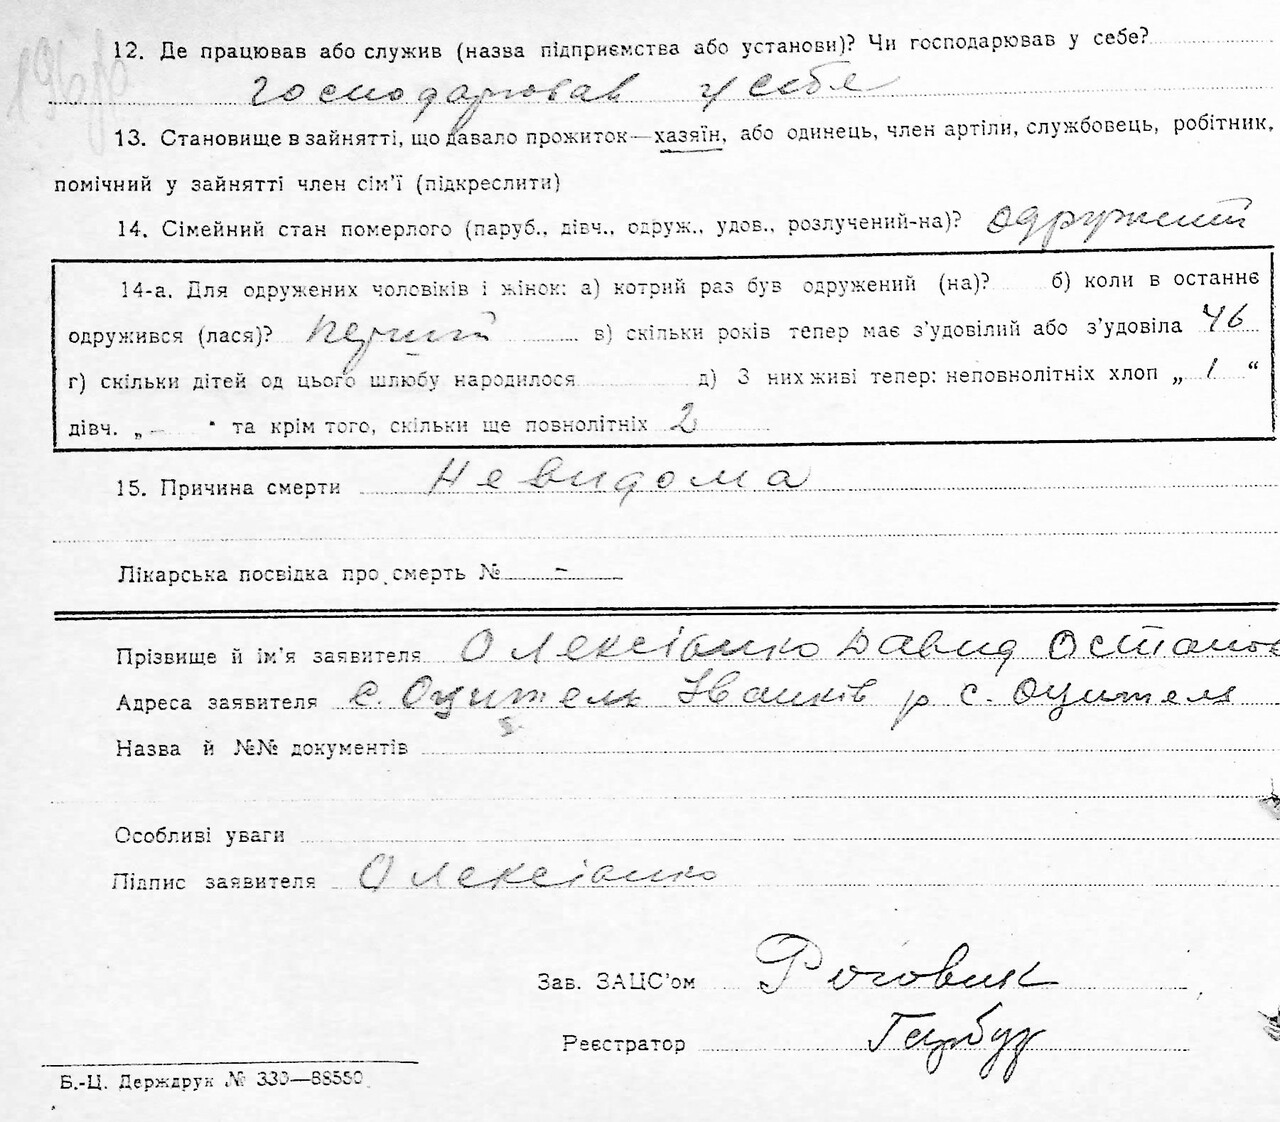 12. Де працював або служив (назва підприємства або установи)? Чи господарював у себе?
господарював у себе
13. Становище в зайнятті, що давало прожиток—хазяїн, або одинець, член артіли, службовець, робітник,
помічний у зайнятті член сім'ї (підкреслити)
14. Сімейний стан померлого (паруб., дівч., одруж., удов., розлучений-на)? одружений
14-а. Для одружених чоловіків і жінок: а) котрий раз був одружений (на)? б) коли в останнє
одружився (лася)? перший в) скільки років тепер має з'удовілий або з'удовіла 46
г) скільки дітей од цього шлюбу народилося д) З них живі тепер: неповнолітніх хлоп „ 1 “
дівч. „ — “ та крім того, скільки ще повнолітніх 2
15. Причина смерти Невидома
Лікарська посвідка про смерть № -
Прізвище й ім'я заявителя Олексієнко Давид
Адреса заявителя с. Оцитель Іванків р с. Оцитель
Назва й №№ документів
Особливі уваги
Підпис заявителя Олексієнко
Зав. ЗАЦС'ом Роговик
Реєстратор
Б.-Ц. Держдрук № 333—88550